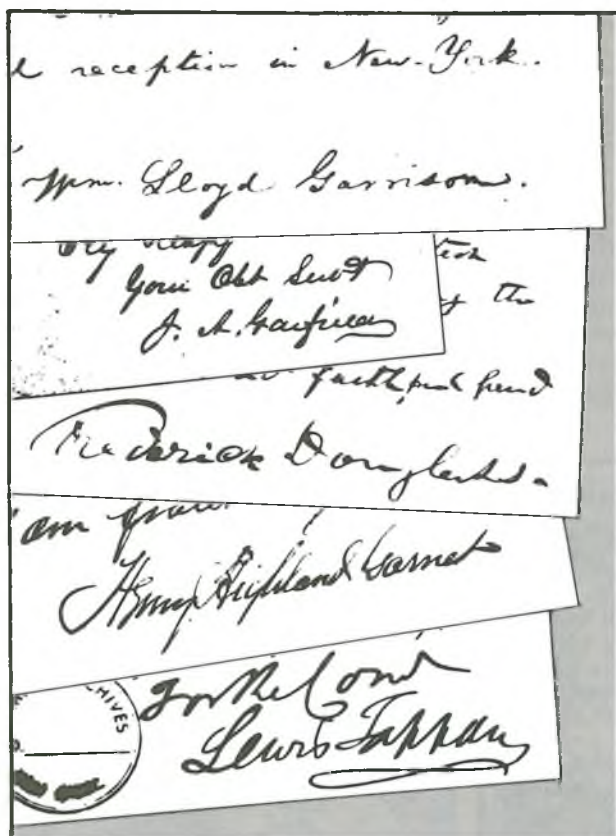 reception in New-York.
Wm. Lloyd Garrison.
Your Obt Servt
the
J. A. Garfield
faithful friend
Frederick Douglass.
am
Henry Highland Garnet
HIVES
For the Com
Lewis Tappan